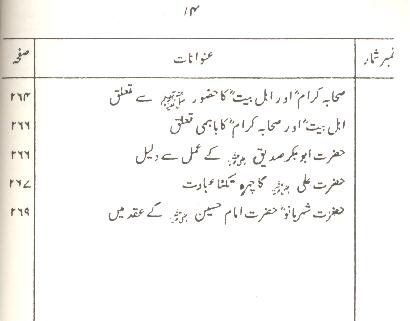 ۱۴
نمبر شمار عنوانات صفحہ
صحابہ کرامؓ اور اہل بیتؓ کا حضور ﷺ سے تعلق ۲۶۴
اہل بیتؓ اور صحابہ کرامؓ کا باہمی تعلق ۲۶۶
حضرت ابوبکر صدیق رضی اللہ عنہ کے عمل سے دلیل ۲۶۶
حضرت علی رضی اللہ عنہ کا چہرہ تکنا عبادت ۲۶۷
حضرت شہربانوؓ حضرت امام حسین رضی اللہ عنہ کے عقد میں ۲۶۹